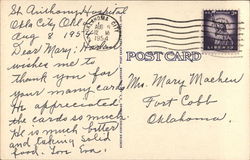 St. Anthony Hospital
Okla City Okla
Aug 8 1954
Dear Mary:
wishes me to
thank you for
your many cards
He appreciated
the cards so much
He is much better
and taking solid
food.
POST CARD
Mrs. Mary Machen
Fort Cobb
Oklahoma.
OKLAHOMA CITY
AUG
1954